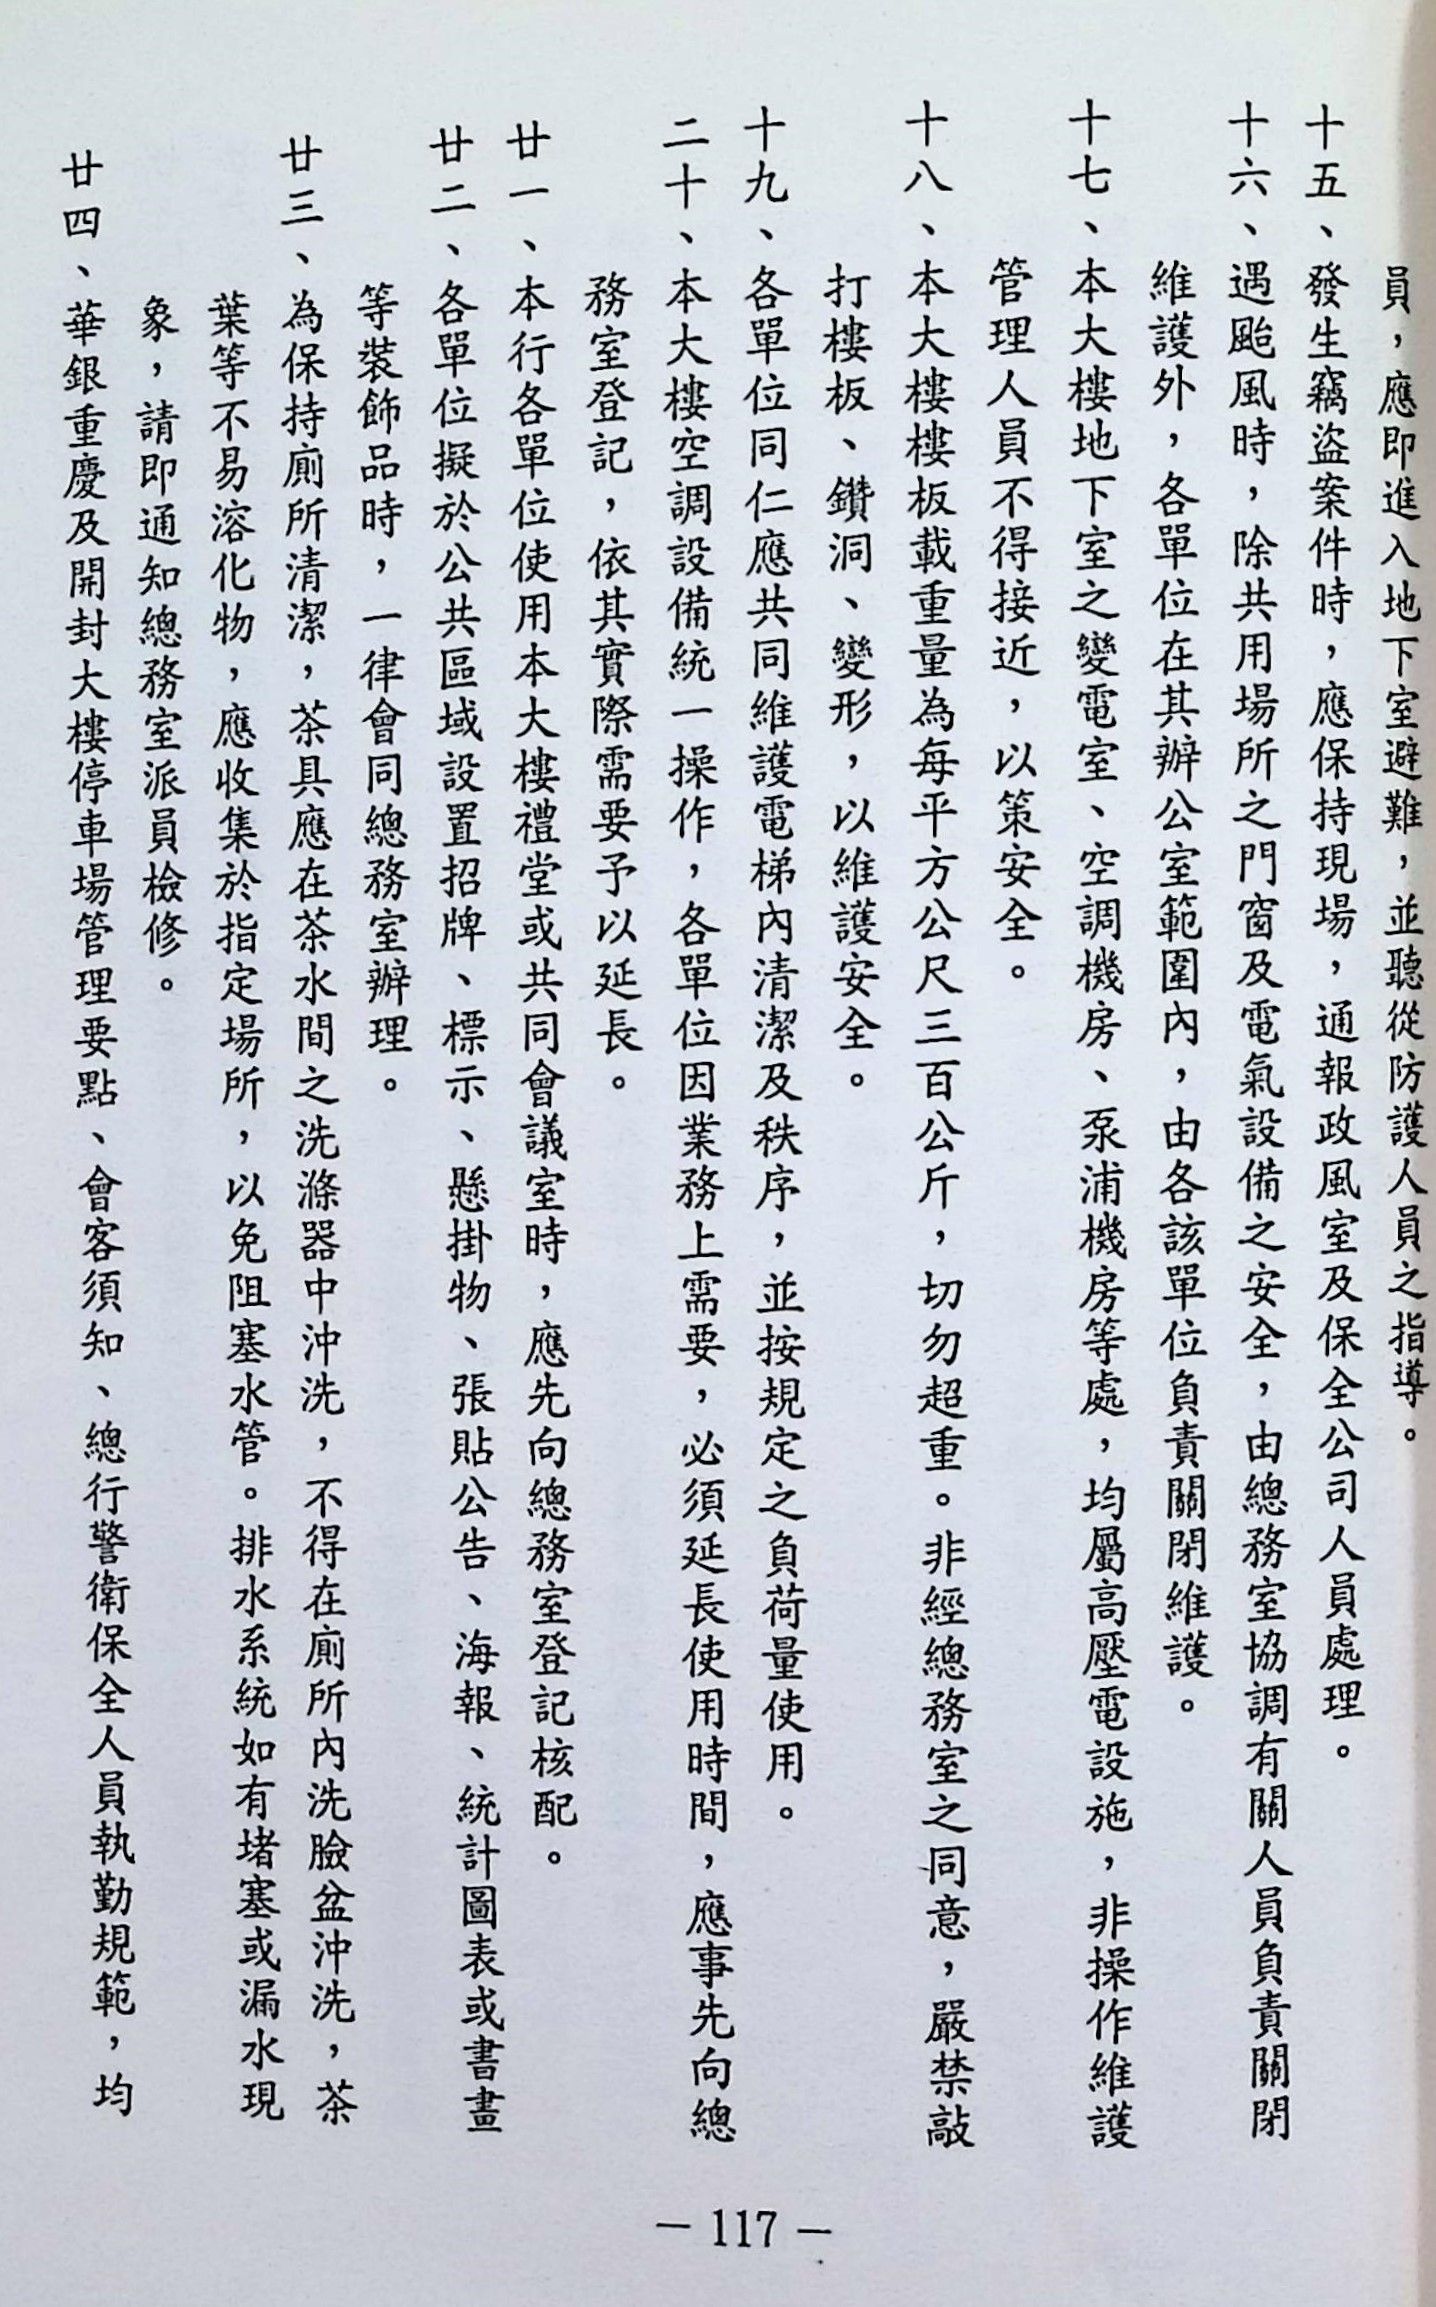 員，應即進入地下室避難，並聽從防護人員之指導。
十五、發生竊盜案件時，應保持現場，通報政風室及保全公司人員處理。
十六、遇颱風時，除共用場所之門窗及電氣設備之安全，由總務室協調有關人員負責關閉
維護外，各單位在其辦公室範圍內，由各該單位負責關閉維護。
十七、本大樓地下室之變電室、空調機房、泵浦機房等處，均屬高壓電設施，非操作維護
管理人員不得接近，以策安全。
十八、本大樓樓板載重量為每平方公尺三百公斤，切勿超重。非經總務室之同意，嚴禁敲
打樓板、鑽洞、變形，以維護安全。
十九、各單位同仁應共同維護電梯內清潔及秩序，並按規定之負荷量使用。
二十、本大樓空調設備統一操作，各單位因業務上需要，必須延長使用時間，應事先向總
務室登記，依其實際需要予以延長。
廿一、本行各單位使用本大樓禮堂或共同會議室時，應先向總務室登記核配。
廿二、各單位擬於公共區域設置招牌、標示、懸掛物、張貼公告、海報、統計圖表或書畫
等裝飾品時，一律會同總務室辦理。
廿三、為保持廁所清潔，茶具應在茶水間之洗滌器中沖洗，不得在廁所內洗臉盆沖洗，茶
葉等不易溶化物，應收集於指定場所，以免阻塞水管。排水系統如有堵塞或漏水現
象，請即通知總務室派員檢修。
廿四、華銀重慶及開封大樓停車場管理要點、會客須知、總行警衛保全人員執勤規範，均
— 117 —